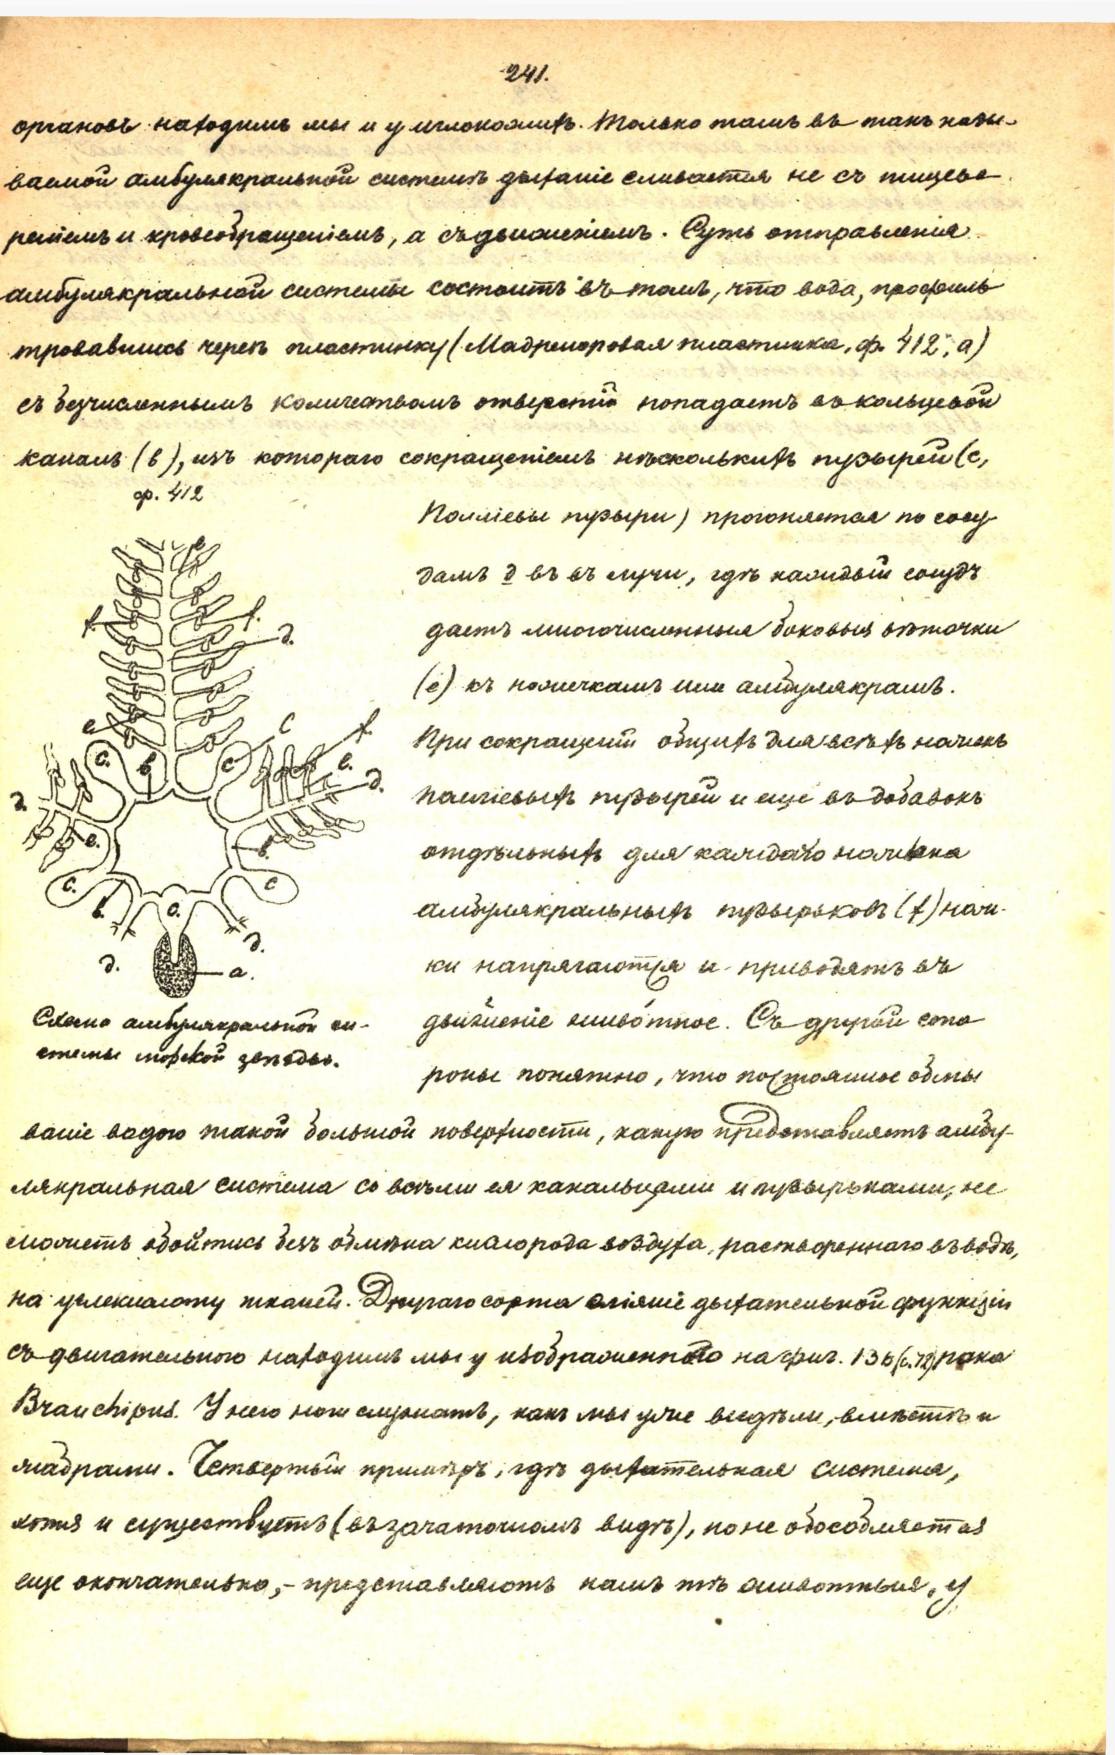 241.
органовъ находимъ мы и у иглокожихъ. Только тамъ въ такъ назы-
ваемой амбулякральной системѣ дыханіе сливается не съ пищева-
реніемъ и кровеобращеніемъ, а съ движеніемъ. Суть отправленія
амбулякральной системы состоитъ въ томъ, что вода, профиль
тровавшись черезъ пластинку (Мадрепоровая пластинка, ф. 412, а)
съ безчисленнымъ количествомъ отверстій попадаетъ въ кольцевой
каналъ (в), изъ котораго сокращеніемъ нѣсколькихъ пузырей (с,
ф. 412
Полліевы пузыри) прогоняется по сосу
дамъ д въ въ лучи, гдѣ каждый сосудъ
даетъ многочисленныя боковыя вѣточки
(е) къ ножичкамъ или амбулякрамъ.
При сокращеніи общихъ для всѣхъ ножекъ
полліевыхъ пузырей и еще въ добавокъ
отдѣльныхъ для каждаго
амбулякральныхъ пузырьковъ (f) нож-
ки напрягаются и приводятъ въ
движеніе животное. Съ другой сто
роны понятно, что постоянное обмы
ваніе водою такой большой поверхности, какую представляетъ амбу-
лякральная система со всѣми ея канальцами и пузырьками, не
можетъ обойтись безъ обмѣна кислорода воздуха, раствореннаго въ водѣ,
на углекислоту тканей. Другаго сорта сліяніе дыхательной функціи
съ двигательною находимъ мы у изображеннаго на фиг. 136 (с. 72) рака
Branchipus. У него ноги служатъ, какъ мы уже видѣли, вмѣстѣ и
жабрами. Четвертый примѣръ, гдѣ дыхательная система,
хотя и существуетъ (въ зачаточномъ видѣ), но не обособляется
еще окончательно, - представляютъ намъ тѣ животныя, у
e
f. f. д.
e c. в c c f. e. д.
д. e. в.
c. в. c. c д.
д. a.
Схема амбулякральной си-
стемы морской звѣзды.